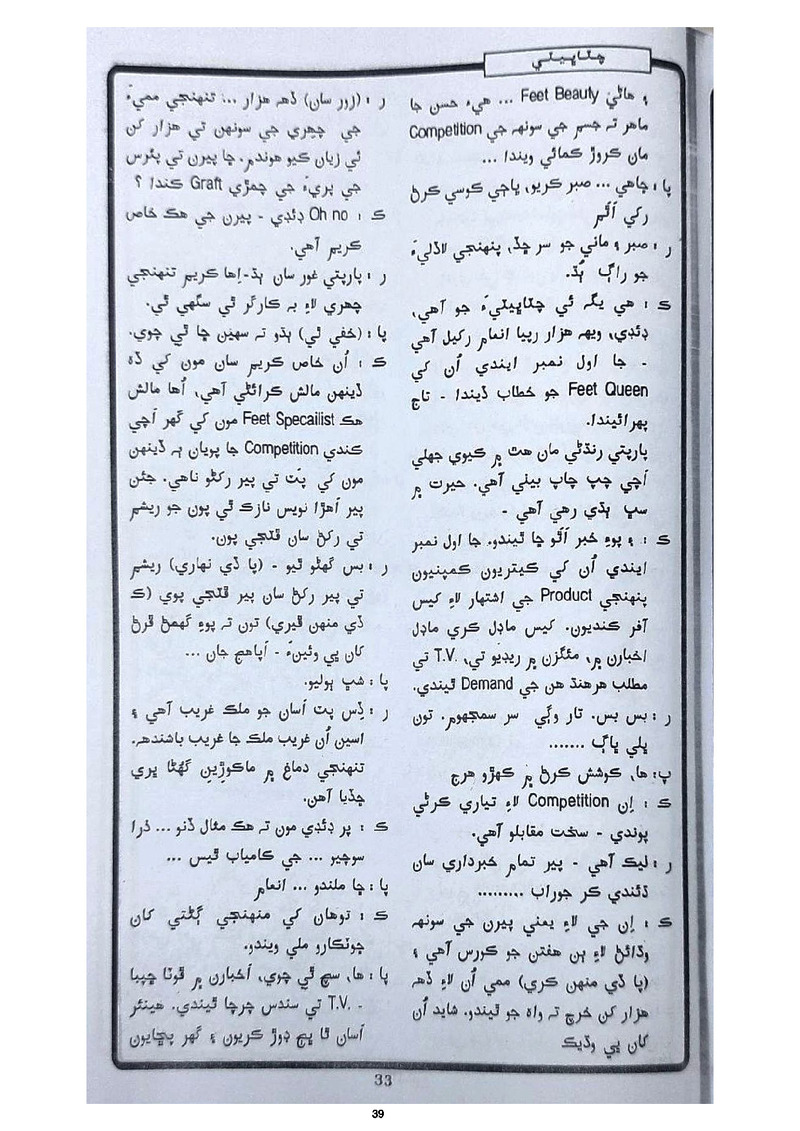 چٽاڀيٽي
۽ هاڻي Feet Beauty ... هيءَ حسن جا
ماهر تہ جسم جي سونهہ جي Competition
مان ڪروڙ ڪمائي ويندا ...
پا : چاهي ... صبر ڪريو، ڀاڄي کوسي ڪرڻ
رکي اَٿم
ر : صبر ۽ ماني جو سر ڇڏ، پنهنجي لاڏليءَ
جو راڳ ٻُڌ.
ڪ : هي يگہ ئي چٽاڀيٽيءَ جو آهي،
ڊئڊي، ويهہ هزار رپيا انعام رکيل آهي
- جا اول نمبر ايندي اُن کي
Feet Queen جو خطاب ڏيندا - تاج
پهرائيندا.
پارپتي رنڌڻي مان هٿ ۾ ڪيوي جهلي
اَچي چپ چاپ بيٺي آهي. حيرت ۾
سڀ ٻڌي رهي آهي -
ڪ : ۽ پوءِ خبر اَٿو ڇا ٿيندو. جا اول نمبر
ايندي اُن کي ڪيتريون ڪمپنيون
پنهنجي Product جي اشتهار لاءِ ڪيس
آفر ڪنديون. کيس ماڊل ڪري ماڊل
اخبارن ۾، مئگزن ۾ ريڊيو تي، .T.V تي
مطلب هر هنڌ هن جي Demand ٿيندي.
ر : بس بس. تار وڳي سر سمجهوم. تون
ڀلي ڀاڳ .......
پ: ها، ڪوشش ڪرڻ ۾ ڪهڙو هرج
ڪ : اِن Competition لاءِ تياري ڪرڻي
پوندي - سخت مقابلو آهي.
ر : ليڪ آهي - پير تمام خبرداري سان
ڌئندي ڪر جوراب .........
ڪ : اِن جي لاءِ يعني پيرن جي سونهہ
وڌائڻ لاءِ ٻن هفتن جو ڪورس آهي ۽
(پا ڏي منهن ڪري) ممي اُن لاءِ ڏهہ
هزار کن خرچ تہ واهہ جو ٿيندو. شايد اُن
کان ڀي وڌيڪ
ر : (زور سان) ڏهہ هزار ... تنهنجي مميءَ
جي چهري جي سونهن تي هزار کن
ئي زيان ڪيو هوندم. ڇا پيرن تي پئرس
جي پريءَ جي چمڙي Graft ڪندا ؟
ڪ : Oh no ڊئڊي - پيرن جي هڪ خاص
ڪريم آهي.
ر : پارپتي غور سان ٻڌ-اِها ڪريم تنهنجي
چهري لاءِ بہ ڪارگر ٿي سگهي ٿي.
پا : (خفي ٿي) ٻڌو تہ سهين ڇا ٿي چوي.
ڪ : اُن خاص ڪريم سان مون کي ڏهہ
ڏينهن مالش ڪرائڻي آهي، اُها مالش
هڪ Feet Specailist مون کي گهر اَچي
ڪندي Competition جا پويان ٻہ ڏينهن
مون کي پٽ تي پير رکڻو ناهي. جئن
پير اَهڙا نويس نازڪ ٿي پون جو ريشم
تي رکڻ سان ڦٽجي پون.
ر : بس گهڻو ٿيو - (پا ڏي نهاري) ريشم
تي پير رکڻ سان پير ڦٽجي پوي (ڪ
ڏي منهن ڦيري) تون تہ پوءِ گهمڻ ڦرڻ
کان ڀي وئينءَ - اَپاهج جان ...
پا : شڀ ٻوليو.
ر : ڏِس پٽ اَسان جو ملڪ غريب آهي ۽
اسين اُن غريب ملڪ جا غريب باشندهہ.
تنهنجي دماغ ۾ ماڪوڙين گهُٿا ڀري
ڇڏيا آهن.
ڪ : پر ڊئڊي مون تہ هڪ مثال ڏنو ... ذرا
سوچيو ... جي ڪامياب ٿيس ...
پا : ڇا ملندو ... انعام
ڪ : توهان کي منهنجي ڳڻتي کان
ڇوٽڪارو ملي ويندو.
پا : ها، سچ ٿي چوي، اَخبارن ۾ ڦوٽا ڇپبا
- .T.V تي سندس چرچا ٿيندي. هينئر
اَسان ٿا ڀڄ ڊوڙ ڪريون ۽ گهر پڇايون
33
39